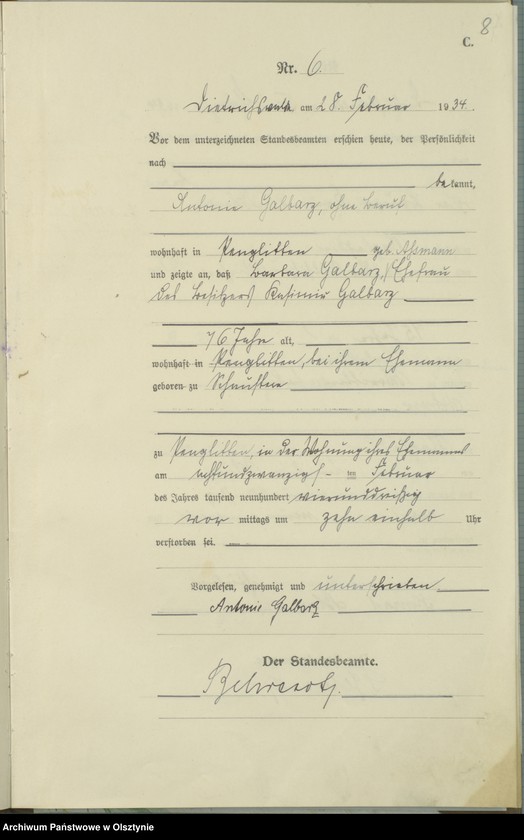 8
C.
Nr. 6.
Dietrichswalde am 28. Februar 1934.
Vor dem unterzeichneten Standesbeamten erschien heute, der Persönlichkeit
nach
bekannt,
Antonie Galbarz, ohne Beruf
wohnhaft in Penglitten geb. Aßmann
und zeigte an, daß Barbara Galbarz, Ehefrau
des Besitzers Kasimir Galbarz
76 Jahre alt,
wohnhaft in Penglitten, bei ihrem Ehemann
geboren zu
zu Penglitten, in der Wohnung ihres Ehemannes
am achtundzwanzigsten Februar
des Jahres tausend neunhundert vierunddreißig
vor mittags um zehn einhalb Uhr
verstorben sei.
Vorgelesen, genehmigt und unterschrieben
Antonie Galbarz
Der Standesbeamte.
Archiwum Państwowe w Olsztynie